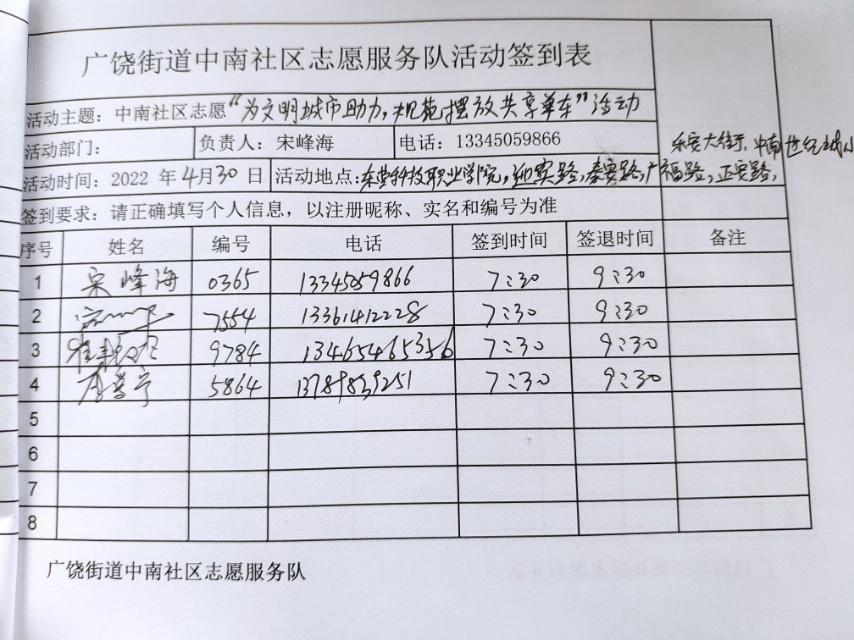 广饶街道中南社区志愿服务队活动签到表
活动主题：中南社区志愿“为文明城市助力，规范摆放共享单车”活动
活动部门： 负责人：宋峰海 电话：13345059866
乐安大街，中南世纪城
活动时间：2022 年4月30日 活动地点：东营科技职业学院，迎宾路，泰安路，广福路，正安路，
签到要求：请正确填写个人信息，以注册昵称、实名和编号为准
序号 姓名 编号 电话 签到时间 签退时间 备注
1 宋峰海 0365 13345059866 7:30 9:30
2 7554 13361412228 7:30 9:30
3 9784 13465465356 7:30 9:30
4 5864 13789839251 7:30 9:30
5
6
7
8
广饶街道中南社区志愿服务队